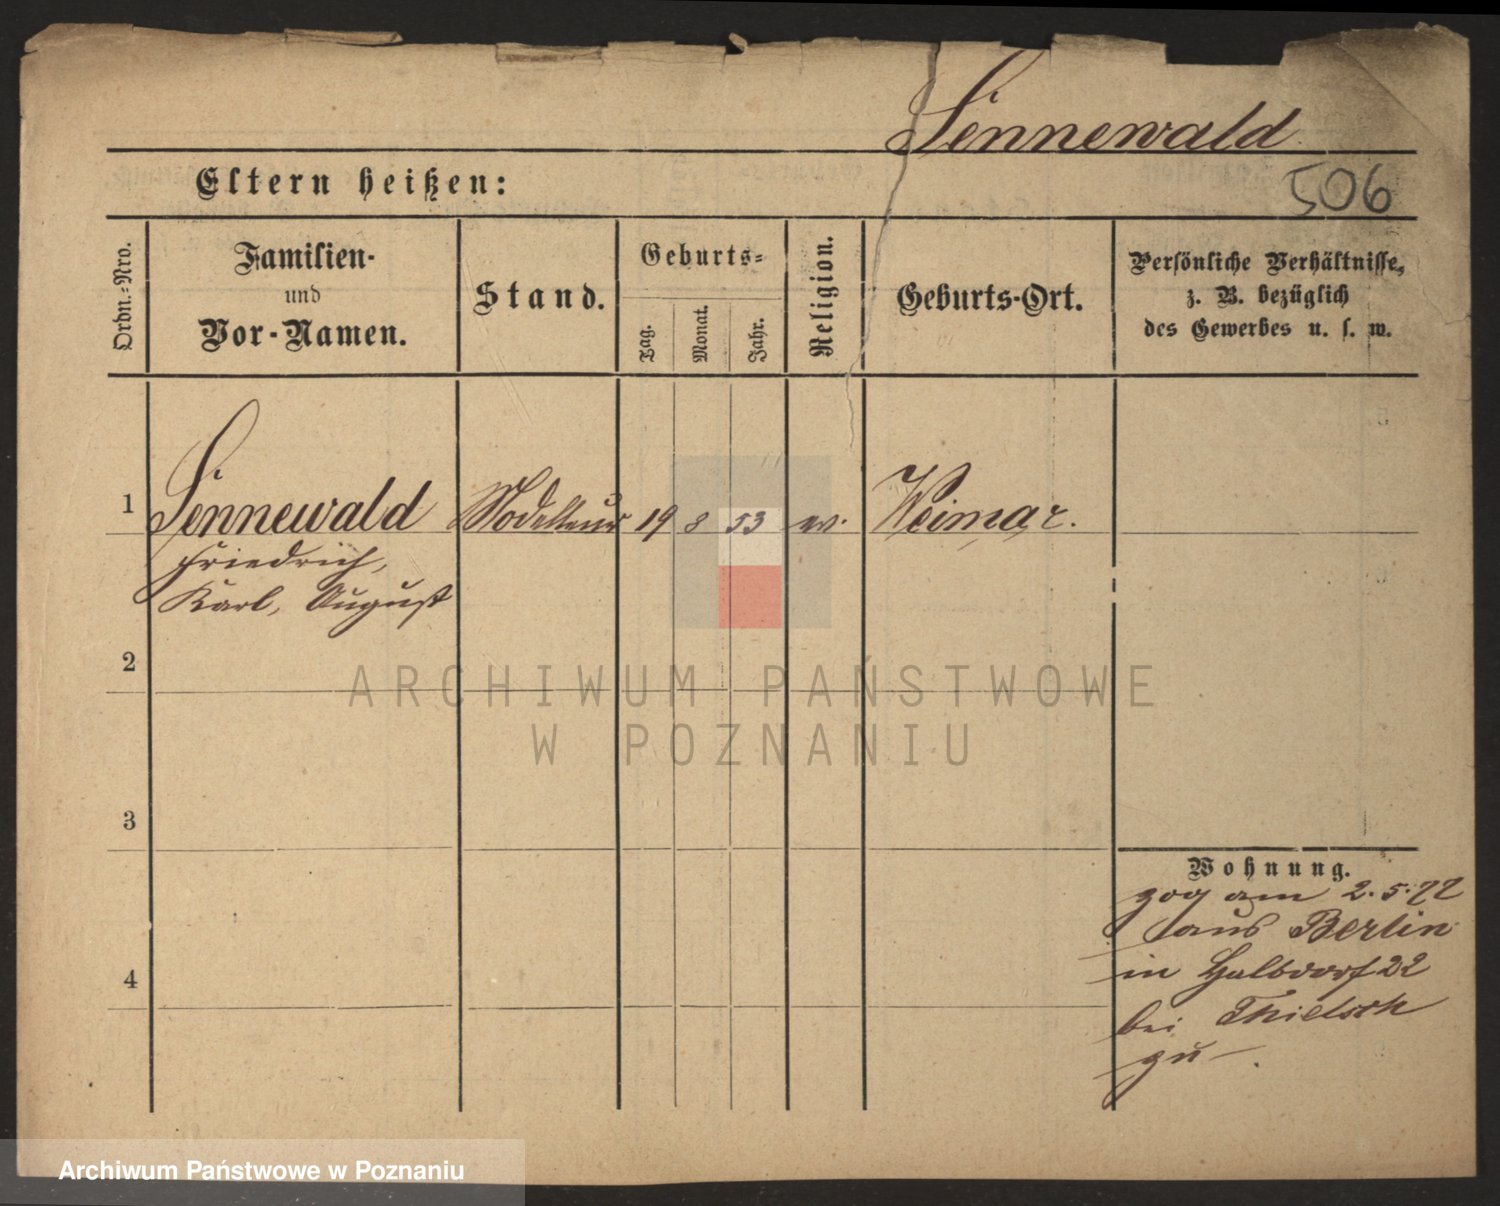 Sennewald
506
Eltern heißen:
Ordn.-Nro.
Familien-
und
Vor-Namen.
Stand.
Geburts-
Tag.
Monat.
Jahr.
Religion.
Geburts-Ort.
Persönliche Verhältnisse,
z. B. bezüglich
des Gewerbes u. s. w.
1 Sennewald Modelleur 19 8 53 ev. Weimar.
Friedrich,
Karl, August
2
3
4
Wohnung.
zog am 2.5.77
aus Berlin
in Halbdorf 22
bei Thielsch
zu
ARCHIWUM PAŃSTWOWE
W POZNANIU
Archiwum Państwowe w Poznaniu